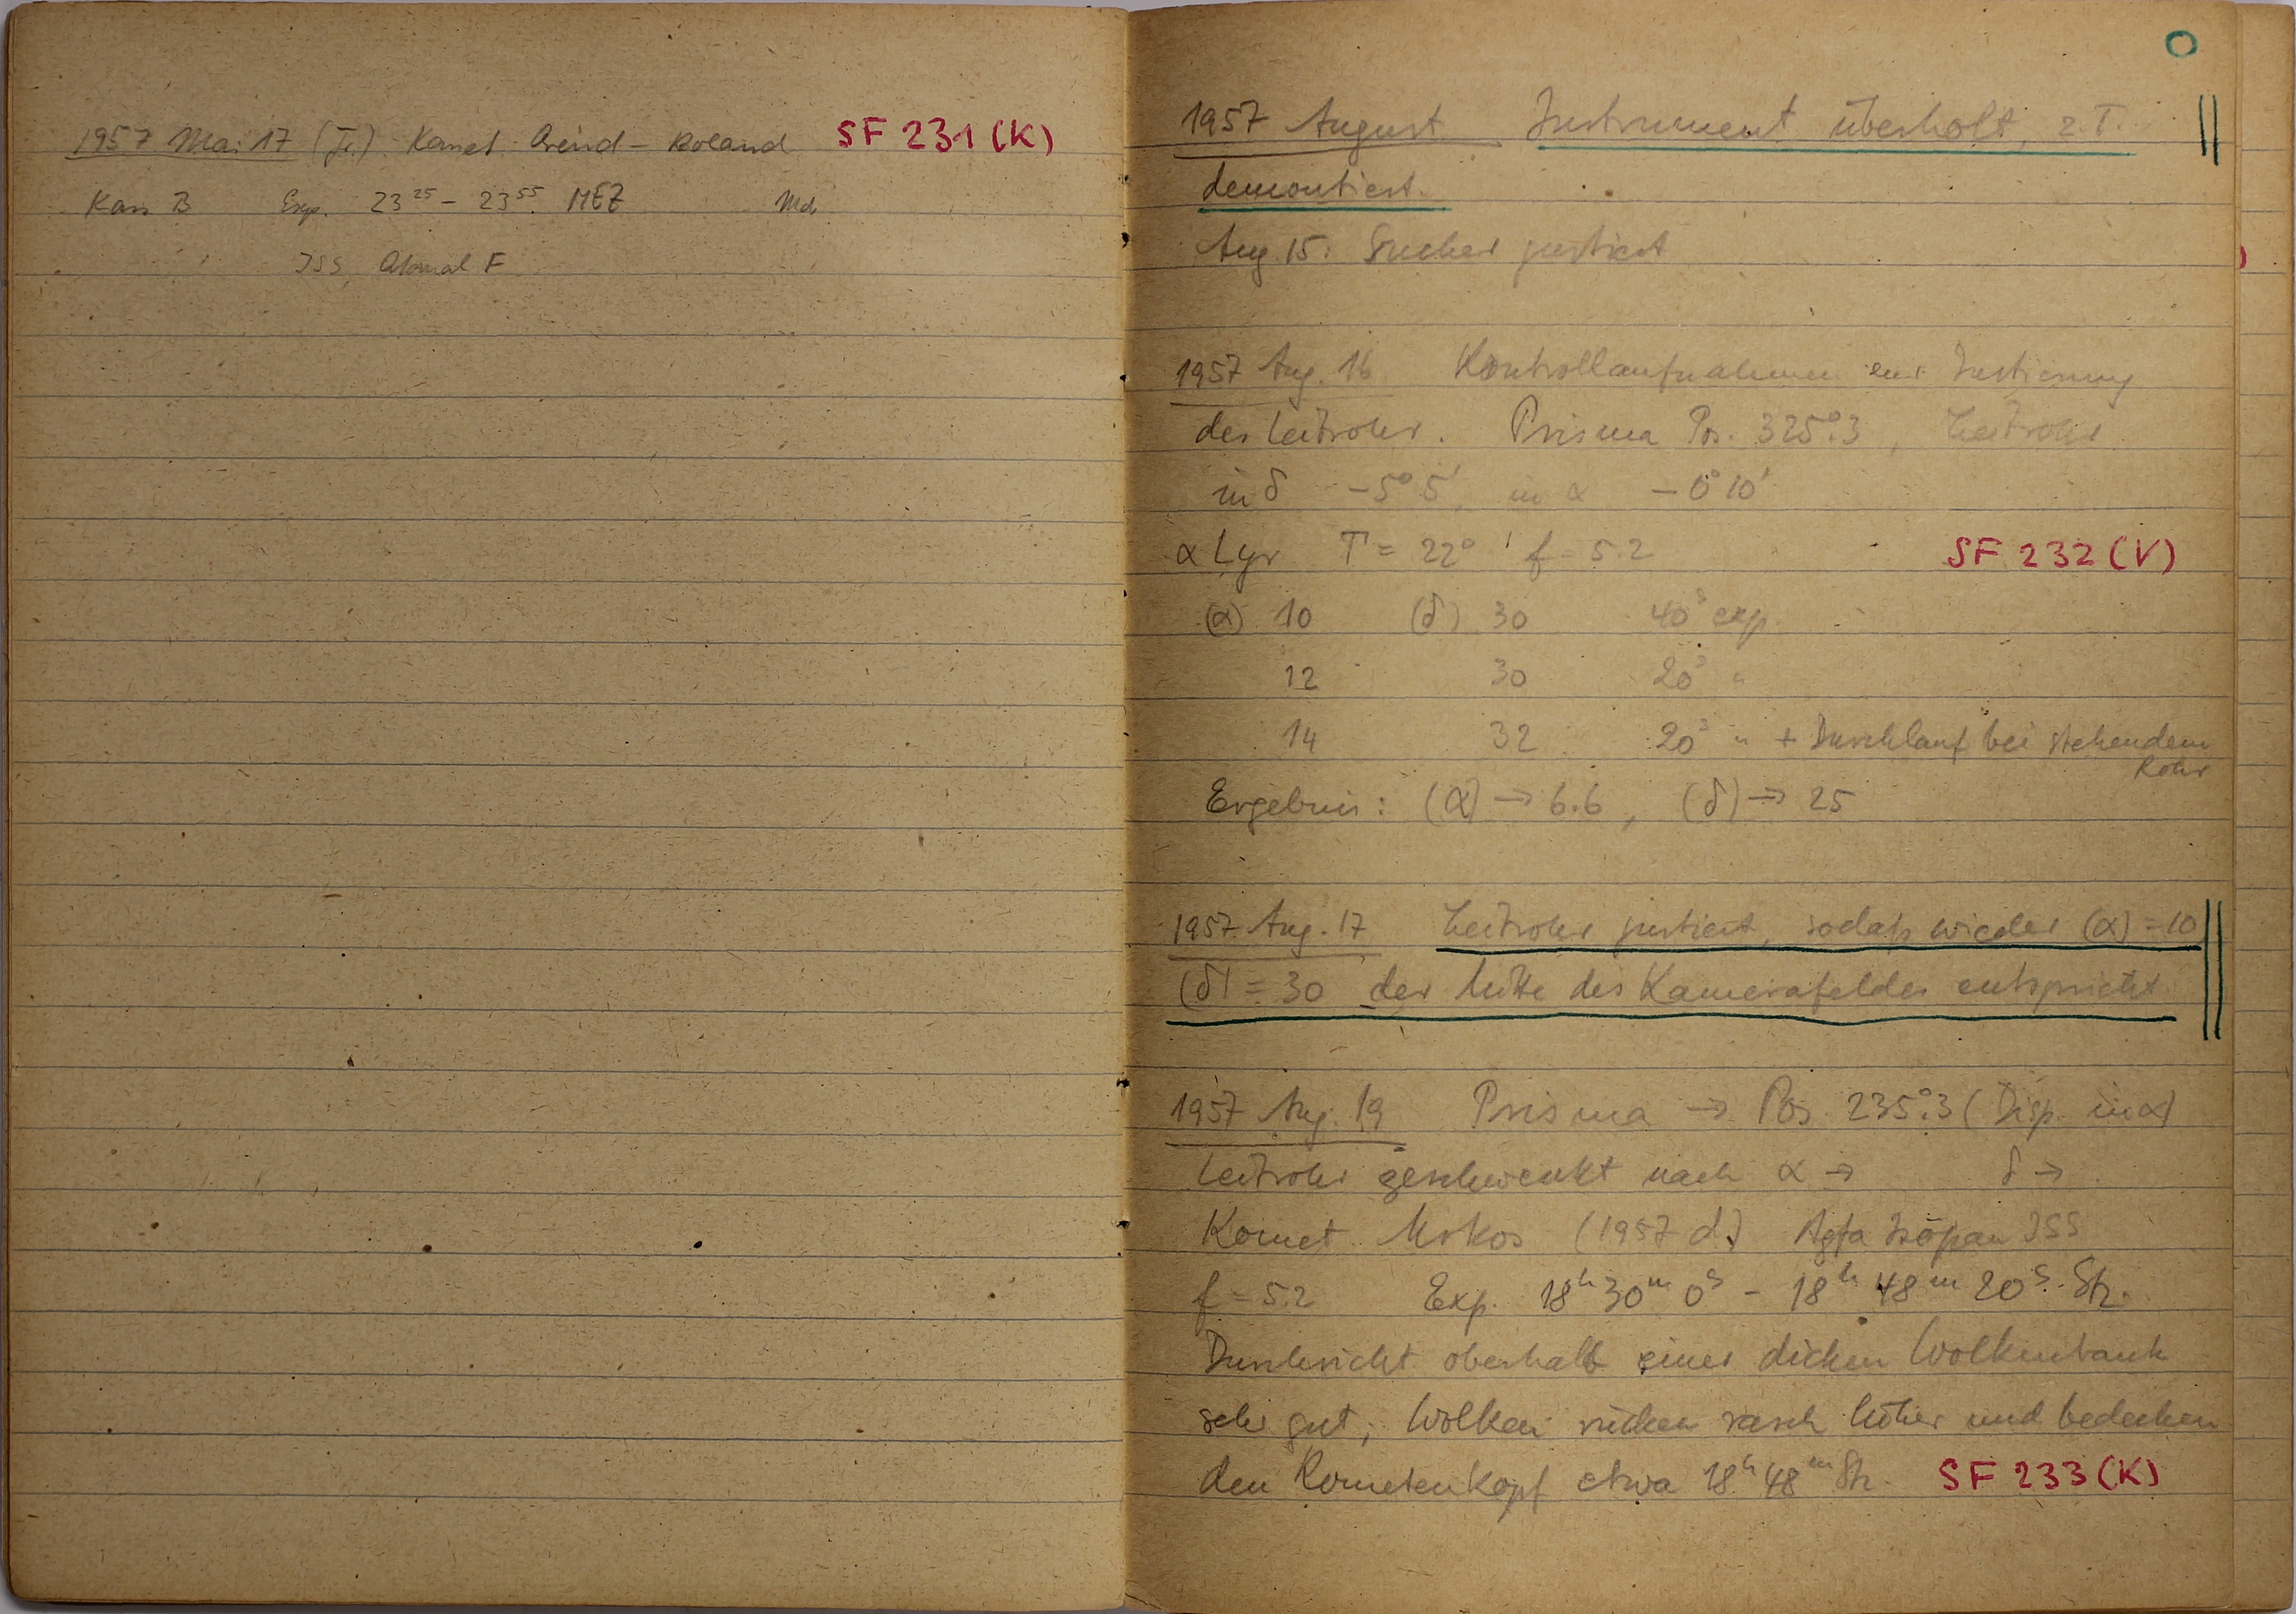 1957 Mai 17 (Fr.) Komet Arend – Roland SF 231 (K)
Kass B Exp. 23 25 – 23 55 MEZ
ISS, Atomal F
O
1957 August Instrument überholt, z.T.
demontiert.
Aug. 15: Sucher justiert
1957 Aug. 16 Kontrollaufnahmen zur Justierung
des Leitrohrs. Prisma Pos. 325°.3, Leitrohr
in δ –5° 5', in α –0° 10'
α Lyr T = 22° f = 5.2 SF 232 (V)
(α) 10 (δ) 30 40s exp.
12 30 20s "
14 32 20s " + Durchlauf bei stehendem
Rohr
Ergebnis: (α) → 6.6, (δ) → 25
1957 Aug. 17 Leitrohr justiert, sodaß wieder (α) = 10
(δ) = 30 der Mitte des Kamerafeldes entspricht.
1957 Aug. 19 Prisma → Pos. 235°.3 (Disp. in α)
Leitrohr geschwenkt nach α → δ →
Komet Mrkos (1957 d) Agfa Isopan ISS
f = 5.2 Exp. 18h 30m 0s – 18h 48m 20s Stz.
Durchsicht oberhalb einer dicken Wolkenbank
sehr gut; Wolken rücken rasch höher und bedecken
den Kometenkopf etwa 18h 48m Stz. SF 233 (K)